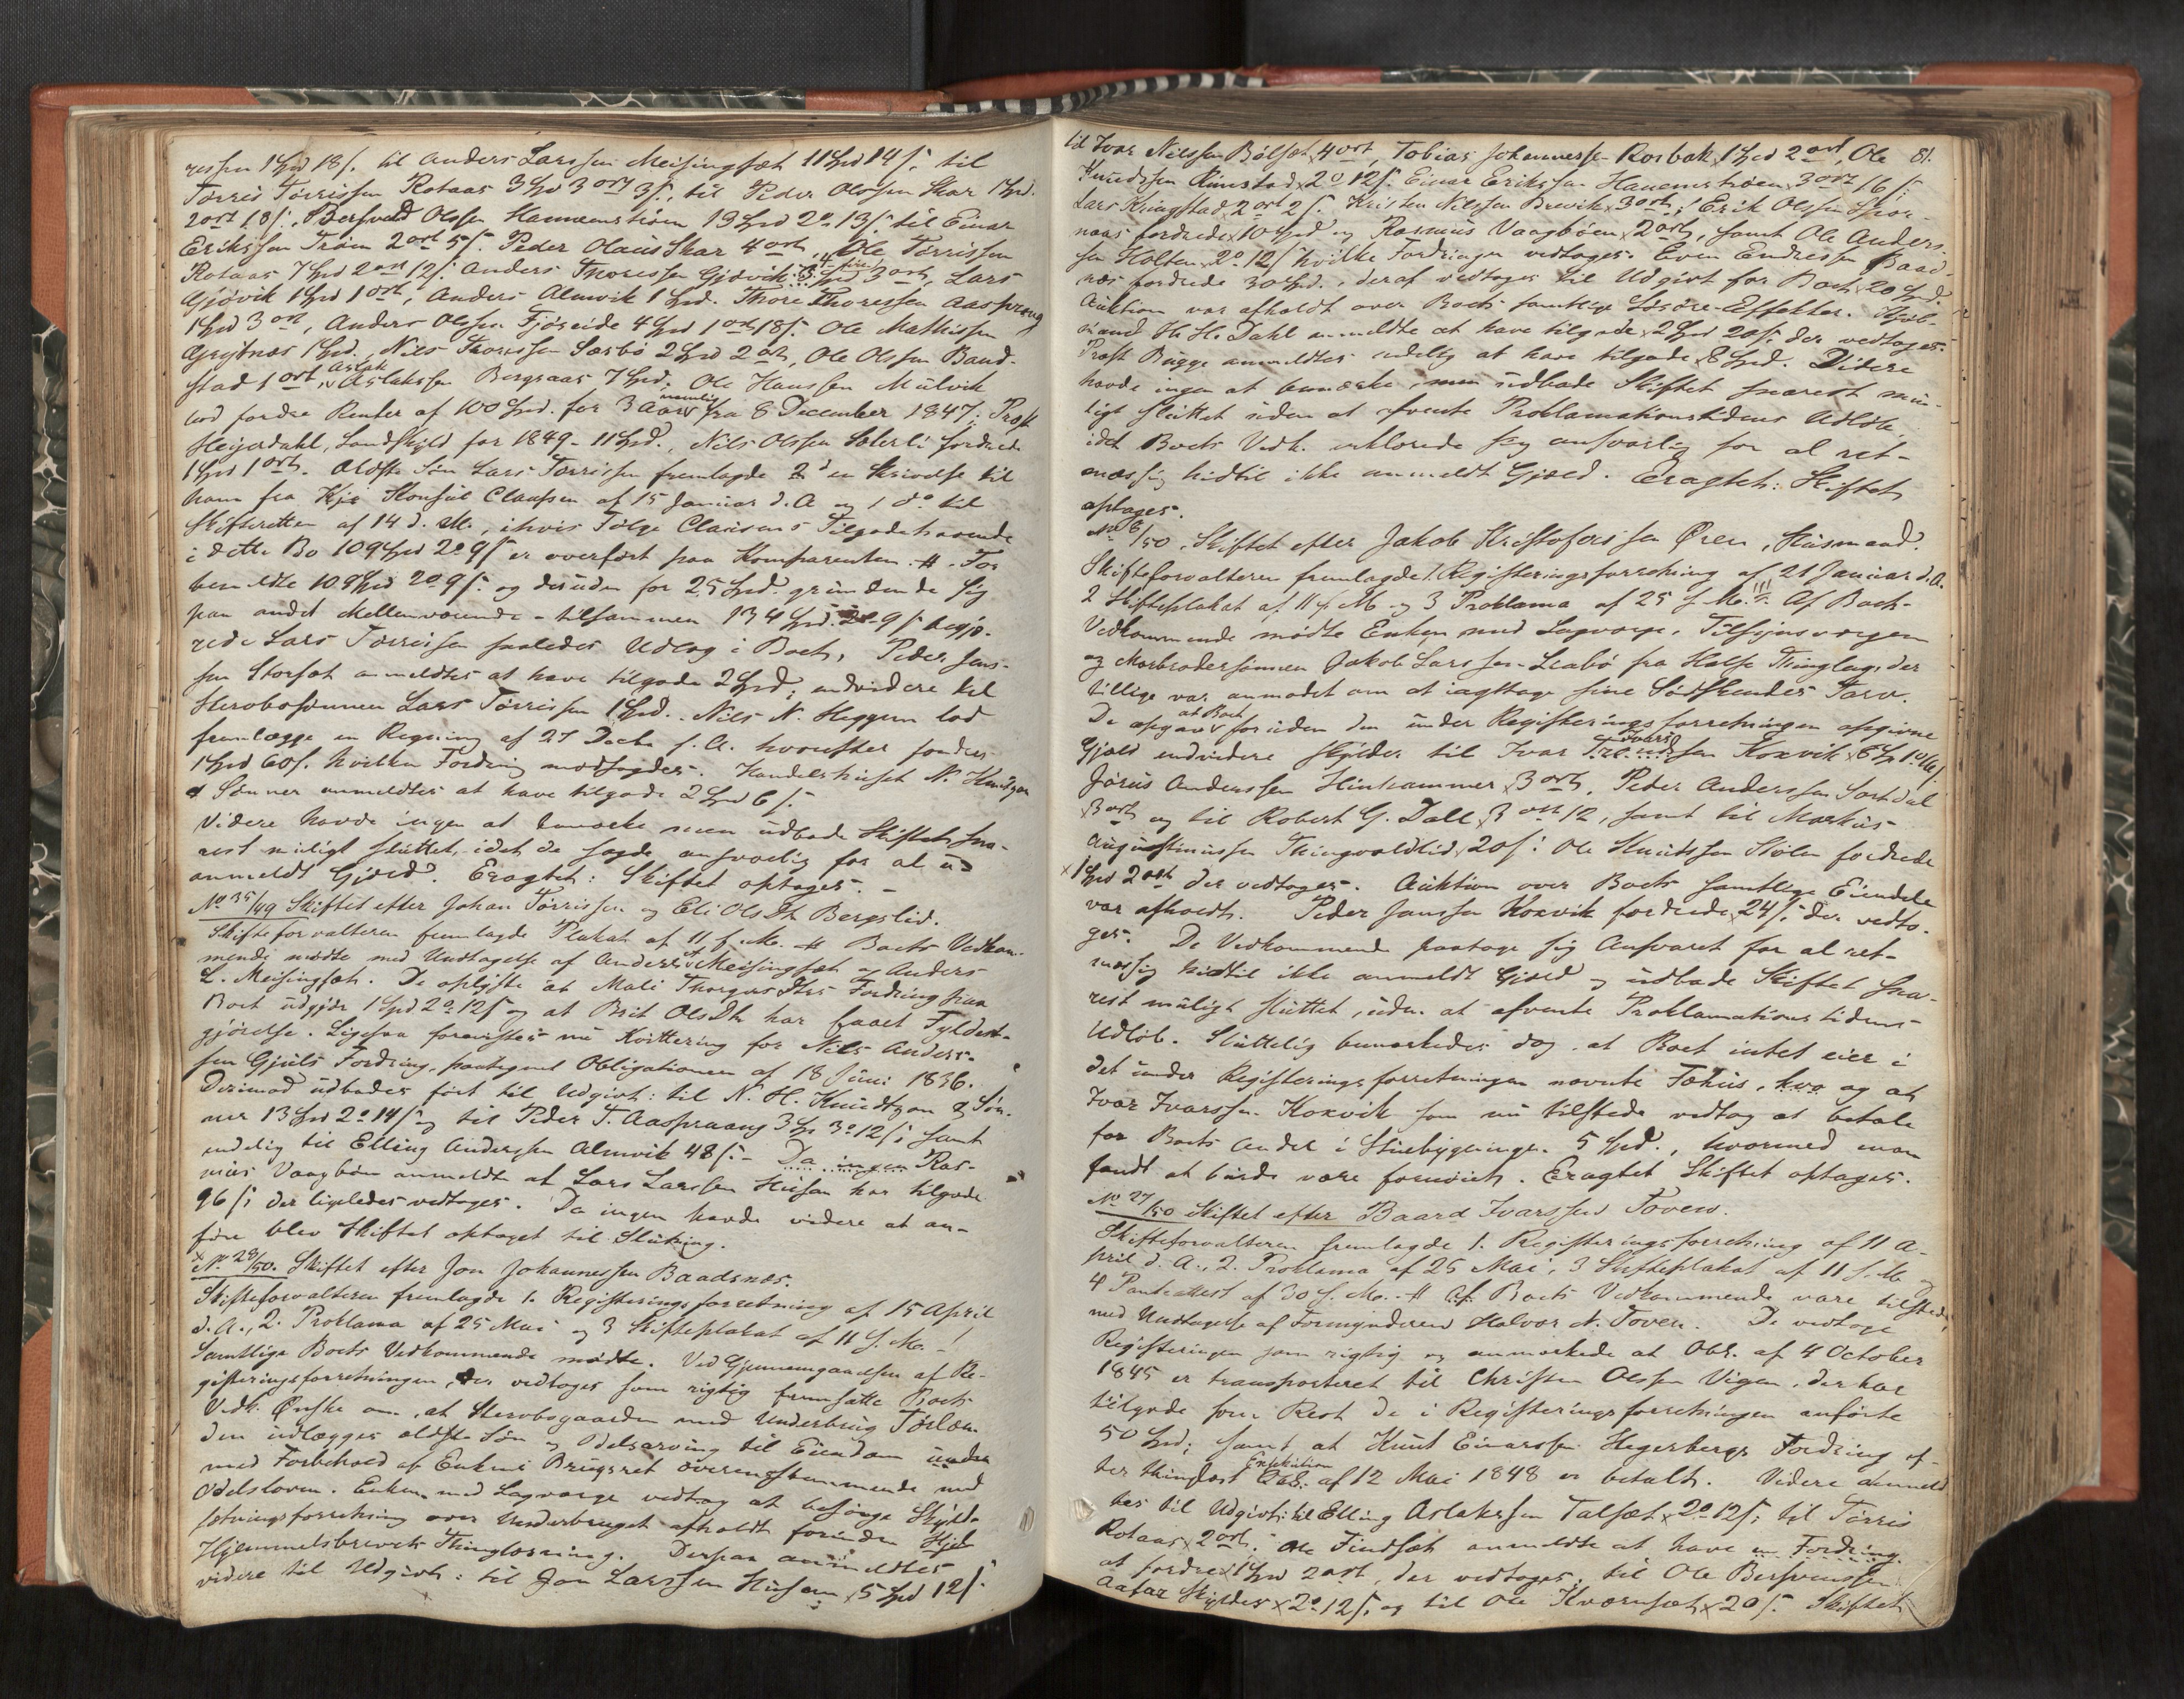 ressen 1 Spd 18 s. til Anders Larssen Meisingsæt 11 Spd 14 s., til
Torris Torrissen Rotaas 3 Spd 3 ort 3 s., til Peder Olossen Skar 1 Spd.
2 ort 18 s., Bersvend Olssen Hannemstrøen 13 Spd 2 o 13 s. til Einar
Erikssen Trøen 2 ort 5 s. Peder Olaus Skar 4 ort, Ole Torrissen
Rotaas 7 Spd 2 ort 12 s. Anders Thoressen Gjøvik 3 Spd 3 ort, Lars
Gjøvik 1 Spd 1 ort, Anders Almvik 1 Spd. Thore Thoressen Aasprang
1 Spd 3 ort, Anders Olssen Fjøseide 4 Spd 1 ort 18 s. Ole Mathissen
Grytnæs 1 Spd. Nils Thoressen Sæsbø 2 Spd 2 ort, Ole Olssen Baad-
stad 1 ort, Aslak Aslakssen Bergsaas 7 Spd; Ole Hanssen Mulvik
lod fordre Renter af 100 Spd. for 3 Aar nemlig fra 8 December 1847; Prost
Heyerdahl, Landskyld for 1849 - 11 Spd., Nils Olssen Sæterli fordrede
1 Spd 1 ort. Ældste Søn Lars Torrissen fremlagde 2 en Skrivelse til
ham fra Kjø Konsul Claussen af 15 Januar d. A og 1 do til
Skifteretten af 14 d. M., ihvis Følge Clausens Tilgodehavende
i dette Bo 109 Spd 2 o 9 s er overført paa Komparenten. # For
bemeldte 109 Spd 2 o 9 s. og desuden for 25 Spd. grundende sig
paa andet Mellemværende - tilsammen 134 Spd. 2 o 9 s begjæ-
rede Lars Torrissen saaledes Udlæg i Boet. Peder Jens-
sen Storsæt anmeldtes at have tilgode 2 Spd; endvidere til
Stervbosønnen Lars Torrissen 1 Spd. Nils N. Heggem lod
fremlægge en Regning af 27 Decbr f. A. hvorefter fordres
1 Spd 60 s. hvilken Fordring modsagdes. Handelshuset N. H. Knudtzon
& Sønner anmeldtes at have tilgode 2 Spd 6 s.
Videre havde ingen at bemærke men udbade Skiftet sna-
rest muligt sluttet, idet de sagde ansvarlig for al u-
anmeldt Gjæld. Eragtet: Skiftet optages. -
No 35/49 Skiftet efter Johan Torrissen og Eli Ols Dtr Bergslid.
Skifteforvalteren fremlagde Plakat af 11 f. M. # Boets Vedkom-
mende mødte med Undtagelse af Anders Meisingsæt og Anders
L. Meisingsæt. De oplyste at Mali Thorgers Dtrs Fordring paa
Boet udgjør 1 Spd 2 o 12 s og at Brit Ols Dtr har faaet Fyldest-
gjørelse. Ligesaa forevistes nu Kvittering for Nils Anders-
sen Gjuls Fordring, paategnet Obligationen af 18 Juni 1836.
Derimod udbades ført til Udgivt: til N. H. Knudtzon & Søn-
ner 13 Spd 2 o 14 s og til Peder T. Aasprang 3 Sp 3 o 12 s; samt
endelig til Elling Anderssen Almvik 48 s. - Da ingen Ras-
mus Vaagbøen anmeldte at Lars Larssen Husan har tilgode
96 s; der ligeledes vedtoges. Da ingen havde videre at an-
føre blev Skiftet optaget til Slutning.
No 28/50. Skiftet efter Jon Johannessen Baadsnæs.
Skifteforvalteren fremlagde 1. Registeringsforretning af 15 April
d. A., 2. Proklama af 25 Mai og 3 Skifteplakat af 11 f. M. -
Samtlige Boets Vedkommende mødte. Ved Gjennemgaaelsen af Re-
gisteringsforretningen, der vedtoges som rigtig fremsatte Boets
Vedk. Ønske om, at Stervbogaarden med Underbrug Torlæn-
den udlægges ældste Søn og Odelsarving til Eiendom under
med Forbehold af Enkens Brugsret overensstemmende med
Odelsloven. Enken med Lagværge vedtog at besørge Skyld-
sætningsforretning over Underbruget afholdt forinden Skjøde
Hjemmelsbrevets Thinglæsning. Derpaa anmeldtes
videre til Udgivt: til Jon Larssen Husan 5 Spd 12 s.
til Ivar Nilssen Bølsæt 4 ort, Tobias Johannessen Rosbak 1 Spd 2 ort, Ole 81.
Knudssen Rimstad 2 o 12 s. Einar Erikssen Hanemstrøen 3 ort 16 s.
Lars Kringstad 2 ort 2 s. Kristen Nilssen Brevik 3 ort; Erik Olssen Spor-
næs fordrede 10 Spd og Rasmus Vaagbøen 2 ort, samt Ole Anders-
sen Holten 2 o 12 s hvilke Fordringer vedtoges. Even Endressen Baad-
næs fordrede 30 Spd., deraf vedtoges til Udgivt for Boet 20 Spd.
Auktion var afholdt over Boets samtlige Løsøre-Effekter. Kjøb-
mand H. H. Dahl anmeldte at have tilgode 2 Spd 20 s. der vedtoges.
Prost Bugge anmeldtes endelig at have tilgode 8 Spd. Videre
havde ingen at bemærke, men udbade Skiftet snarest mu-
ligt sluttet uden at afvente Proklamationstidens Udløb,
idet Boets Vedk. erklærede sig ansvarlig for al ret-
mæssig hidtil ikke anmeldt Gjæld. Eragtet: Skiftet
optages.
No 8/50. Skiftet efter Jakob Kristoferssen Øren, Husmand.
Skifteforvalteren fremlagde 1. Registeringsforretning af 21 Januar d. A.
2 Skifteplakat af 11 f. M og 3 Proklama af 25 f. M. Af Boets
Vedkommende mødte Enken med Lagværge, Tilsynsværgen
og Morbrodersønnen Jakob Larssen Leabø fra Halse Thinglag, der
tillige var anmodet om at iagttage sine Sødskendes Tarv.
De opgave at Boet foruden den under Registeringsforretningen opgivne
Gjæld endvidere skylder til Ivar Ivars sen Koxvik 6 Sp 1 o 16 s.
Jørus Anderssen Hinhammer 3 ort, Peder Anderssen Sortdal
3 ort og til Robert G. Dall 3 ort 12, samt til Markus
Augustinussen Thingvoldlid 20 s. Ole Knudssen Stølen fordrede
1 Spd 2 ort der vedtoges. Auktion over Boets samtlige Eiendele
var afholdt. Peder Janssen Koxvik fordrede 24 s. der vedto-
ges. De Vedkommende paatoge sig Ansvaret for al ret-
mæssig hidtil ikke anmeldt Gjæld og udbade Skiftet sna-
rest muligt sluttet, uden at afvente Proklamationstidens
Udløb. Sluttelig bemærkedes dog, at Boet intet eier i
det under Registeringsforretningen nævnte Føhus, hvo og at
Ivar Ivarssen Koxvik som nu tilstede vedtog at betale
for Boets Andel i Stuebygningen 5 Spd., hvormed man
fandt at burde være fornøiet. Eragtet Skiftet optages.
No 27/50 Skiftet efter Baard Ivarssen Toven.
Skifteforvalteren fremlagde 1. Registeringsforretning af 11 A-
pril d. A., 2. Proklama af 25 Mai, 3 Skifteplakat af 11 f. M og
4 Panteattest af 30 f. M. # Af Boets Vedkommende vare tilstede,
med Undtagelse af Formynderen Halvor N. Toven. De vedtoge
Registeringen som rigtig og anmærkede at Obl. af 4 October
1845 er transporteret til Christen Olssen Vigen, der har
tilgode som Rest de i Registeringsforretningen anførte
50 Spd; samt at Knut Einarssen Hegerbergs Fordring ef-
ter thinglæst Exekution Obl. af 12 Mai 1848 er betalt. Videre anmeld-
tes til Udgivt: til Elling Aslakssen Talsæt 2 o 12 s; til Torris
Rotaas 2 ort. Ole Findsæt anmeldte at have en Fordring
at fordre 1 Spd 2 ort, der vedtoges; til Ole Bersvenssen
Aafar skyldes 2 o 12 s, og til Ole Kvernsæt 20 s. Skiftet